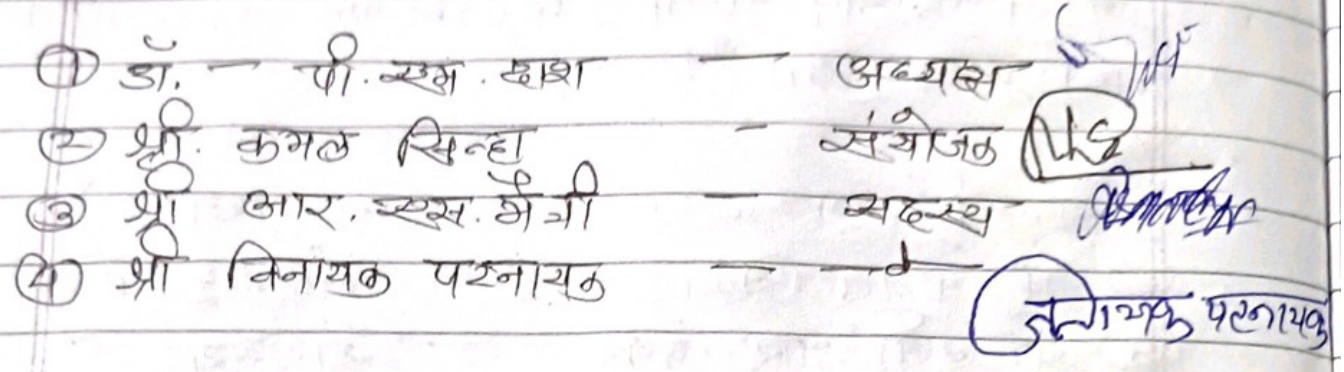 ① डॉ. - पी. एम. दाश — अध्यक्ष
② श्री. कमल सिन्हा - संयोजक
③ श्री आर. एस. मैत्री — सदस्य
④ श्री विनायक पटनायक — —"—
विनायक पटनायक